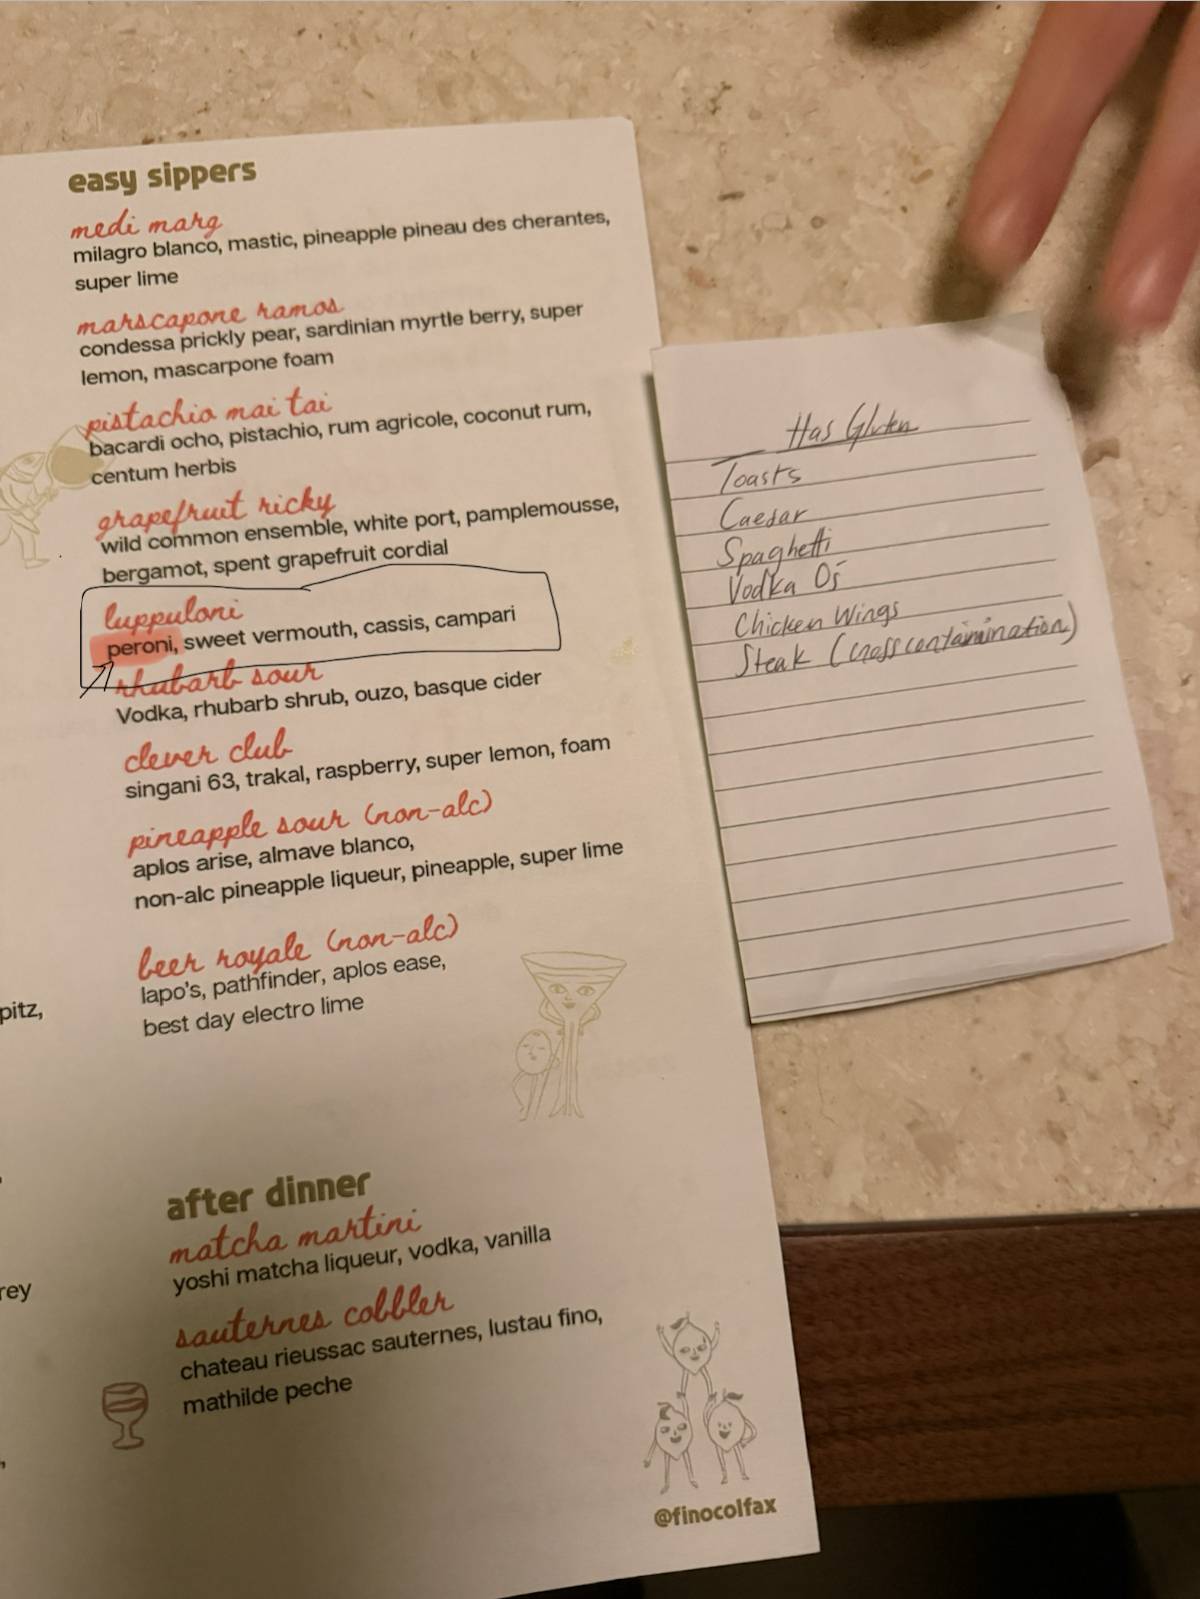 easy sippers
medi marg
milagro blanco, mastic, pineapple pineau des cherantes,
super lime
marscapone ramos
condessa prickly pear, sardinian myrtle berry, super
lemon, mascarpone foam
pistachio mai tai
bacardi ocho, pistachio, rum agricole, coconut rum,
centum herbis
grapefruit ricky
wild common ensemble, white port, pamplemousse,
bergamot, spent grapefruit cordial
luppuloni
peroni, sweet vermouth, cassis, campari
rhubarb sour
Vodka, rhubarb shrub, ouzo, basque cider
clever club
singani 63, trakal, raspberry, super lemon, foam
pineapple sour (non-alc)
aplos arise, almave blanco,
non-alc pineapple liqueur, pineapple, super lime
beer royale (non-alc)
lapo's, pathfinder, aplos ease,
best day electro lime
after dinner
matcha martini
yoshi matcha liqueur, vodka, vanilla
sauternes cobbler
chateau rieussac sauternes, lustau fino,
mathilde peche
@finocolfax
pitz,
rey
Has Gluten
Toasts
Caesar
Spaghetti
Vodka Os
Chicken Wings
Steak (cross contamination)